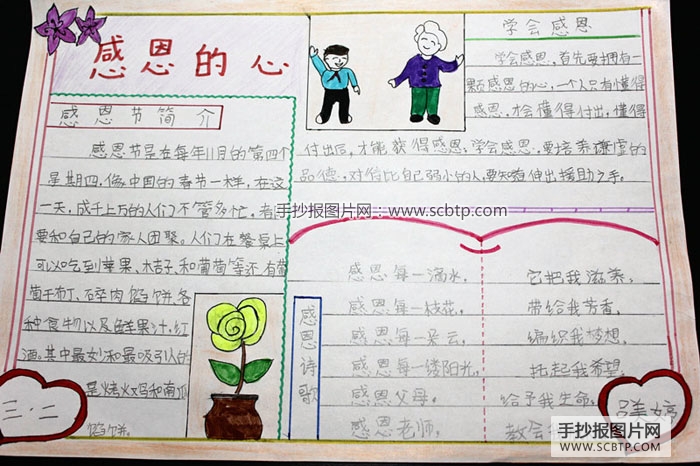 感恩的心
感恩节简介
感恩节是在每年11月的第四个
星期四,像中国的春节一样,在这
一天,成千上万的人们不管多忙,者
要和自己的家人团聚。人们在餐桌上
可以吃到苹果、桔子、和葡萄等还有葡
萄干布丁、碎肉馅饼、各
种食物以及鲜果汁,红
酒。其中最妙和最吸引人的
是烤火鸡和南瓜
馅饼。
三·二
学会感恩
学会感恩,首先要拥有一
颗感恩的心,一个人只有懂得
感恩,才会懂得付出,懂得
付出后,才能获得感恩,学会感恩,要培养谦虚的
品德,对待比自己弱小的人,要知道伸出援助之手。
手抄报图片网:www.scbtp.com
感恩诗歌
感恩每一滴水, 它把我滋养;
感恩每一枝花, 带给我芳香,
感恩每一朵云, 编织我梦想,
感恩每一缕阳光, 托起我希望,
感恩父母, 给予我生命,
感恩老师, 教会
婷
手抄报图片网
WWW.SCBTP.COM